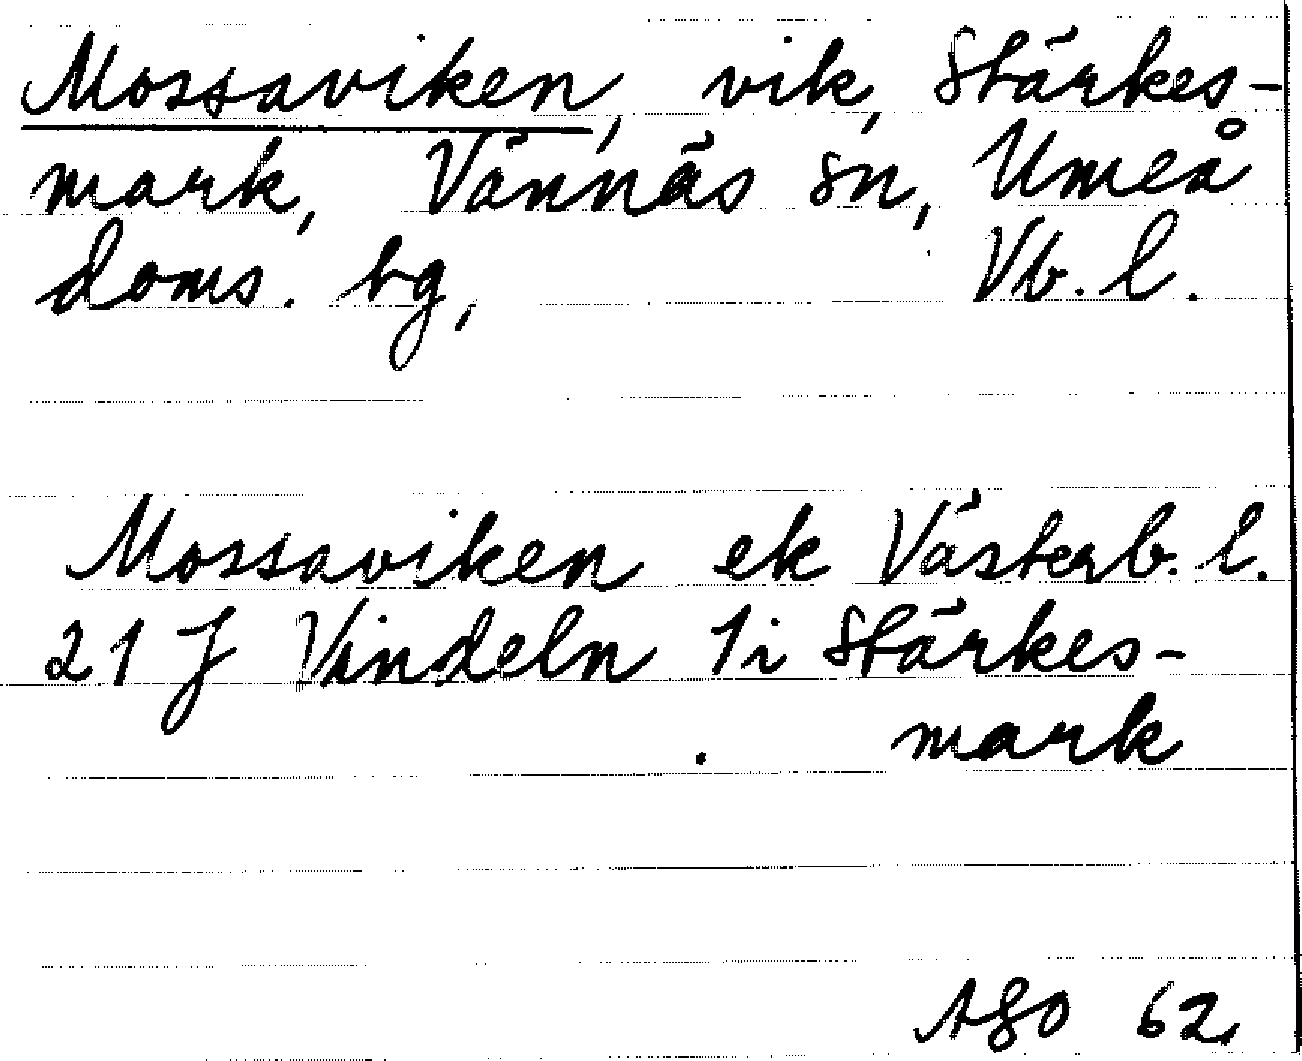 Mossaviken, vik, Stärkes-
mark, Vännäs sn, Umeå
doms. bg, Vb. l.
Mossaviken ek Västerb. l.
21 J Vindeln 1i Stärkes-
mark
ASO 62